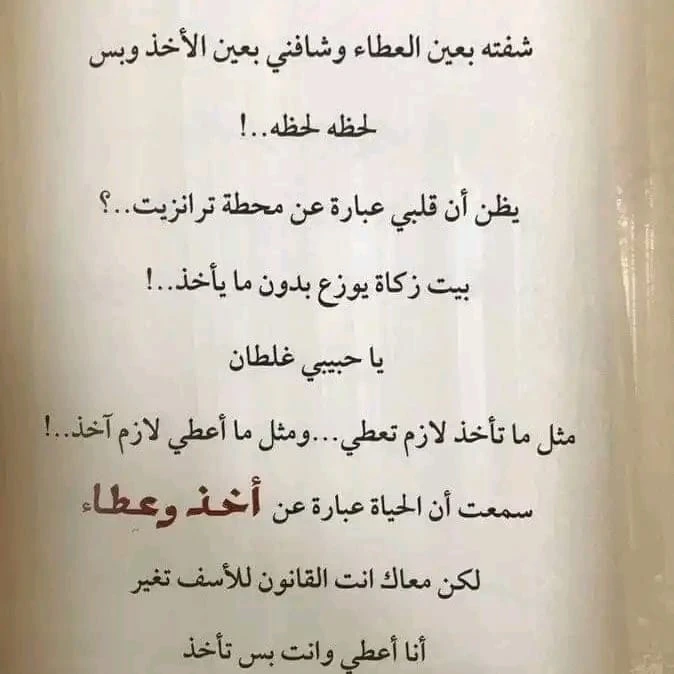 شفته بعين العطاء وشافني بعين الأخذ وبس
لحظه لحظه..!
يظن أن قلبي عبارة عن محطة ترانزيت..؟
بيت زكاة يوزع بدون ما يأخذ..!
يا حبيبي غلطان
مثل ما تأخذ لازم تعطي...ومثل ما أعطي لازم آخذ..!
سمعت أن الحياة عبارة عن أخذ وعطاء
لكن معاك انت القانون للأسف تغير
أنا أعطي وانت بس تأخذ